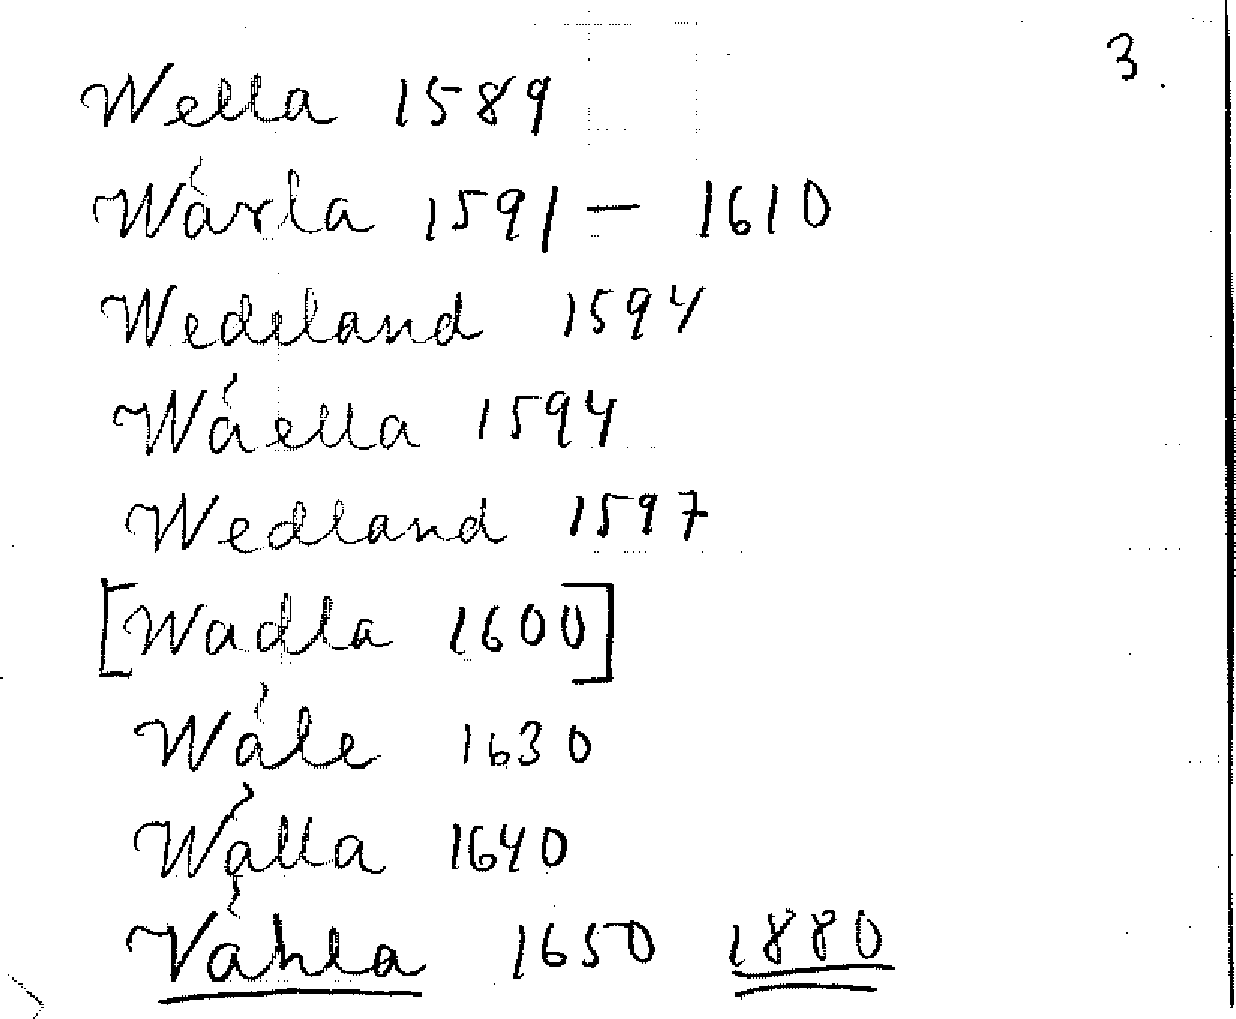 3.
Wella 1589
Wárla 1591 – 1610
Wedeland 1594
Wáella 1594
Wedland 1597
[Wadla 1600]
Wále 1630
Wálla 1640
Váhla 1650 1880